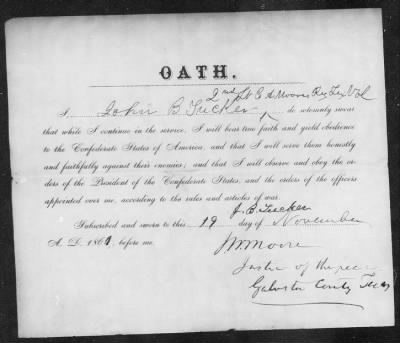 OATH.
2nd Lt E A Moore's Vol
I, John B Tucker do solemnly swear
that while I continue in the service, I will bear true faith and yield obedience
to the Confederate States of America, and that I will serve them honestly
and faithfully against their enemies; and that I will observe and obey the or-
ders of the President of the Confederate States, and the orders of the officers
appointed over me, according to the rules and articles of war.
J. B. Tucker
Subscribed and sworn to this 19 day of November
A. D. 1861, before me.
Moore
Justice of the peace
Galveston County Texas